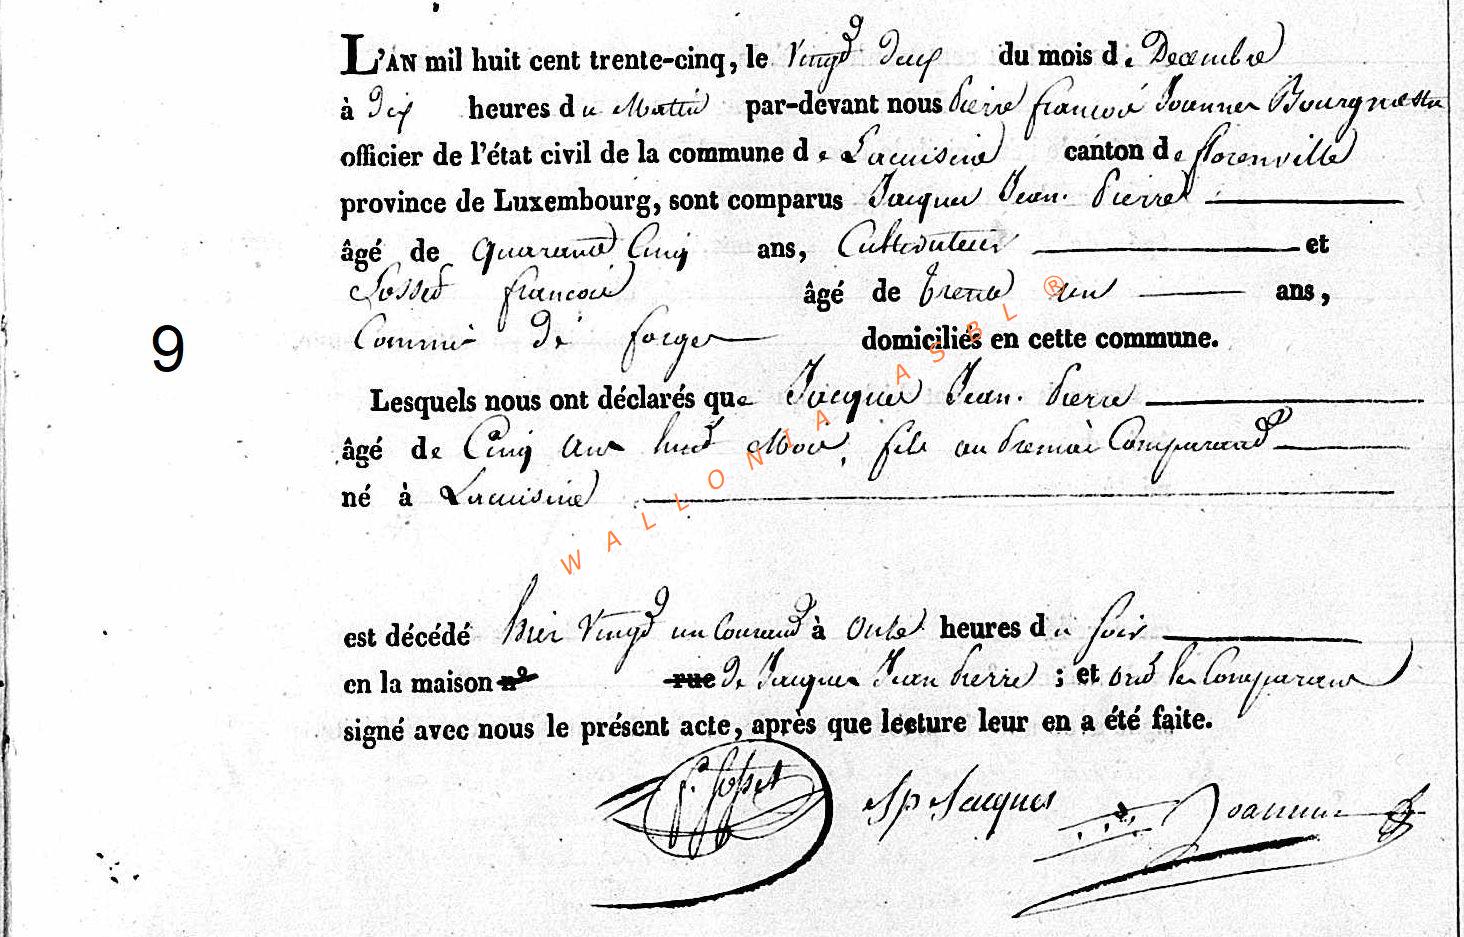 L'AN mil huit cent trente-cinq, le Vingt Deux du mois de Decembre
à Dix heures du Matin par-devant nous Pierre françois Joannes Bourgmestre
officier de l'état civil de la commune de Lacuisine canton de florenville
province de Luxembourg, sont comparus Jacques Jean Pierre
âgé de Quarante Cinq ans, Cultivateur et
Gosset françois âgé de trente un ans,
Commis de forges domiciliés en cette commune.
9
Lesquels nous ont déclarés que Jacques Jean Pierre
âgé de Cinq Ans huit Mois, fils au Premier Comparant
né à Lacuisine
WALLONIA ASBL ®
est décédé hier Vingt un Courant à Onze heures du Soir
en la maison n° rue de Jacques Jean Pierre ; et ont les Comparans
signé avec nous le présent acte, après que lecture leur en a été faite.
f. Gosset JP Jacques Joannes